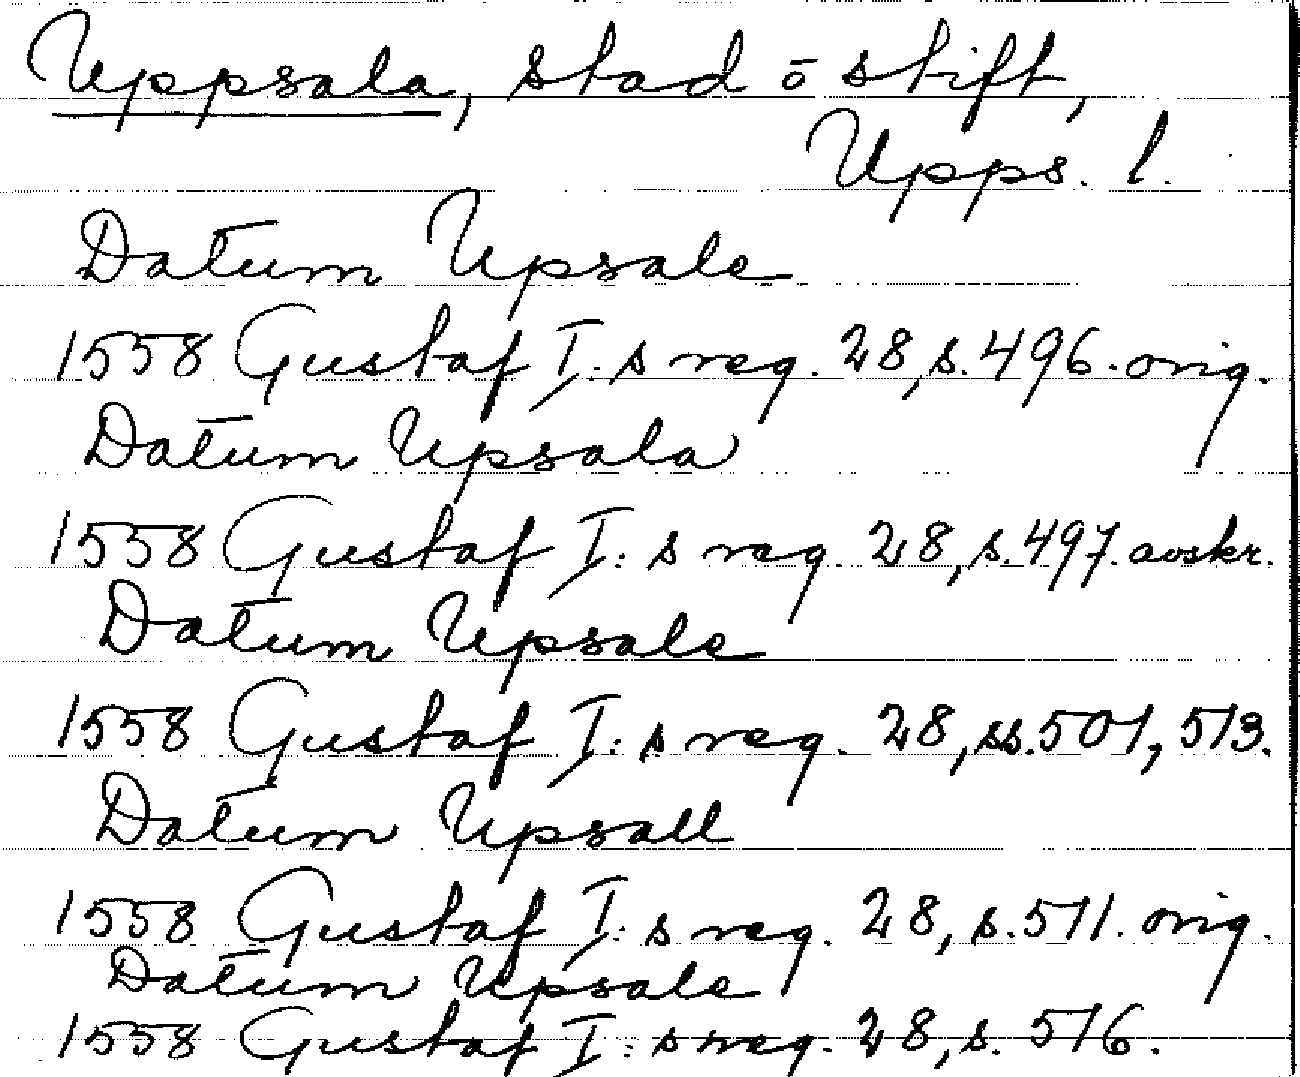 Uppsala, stad o stift,
Upps. l.
Datum Upsale
1558 Gustaf I:s reg. 28, s. 496. orig.
Datum Upsala
1558 Gustaf I:s reg. 28, s. 497. avskr.
Datum Upsale
1558 Gustaf I:s reg. 28, ss. 501, 513.
Datum Upsall
1558 Gustaf I:s reg. 28, s. 511. orig.
Datum Upsale
1558 Gustaf I:s reg. 28, s. 516.